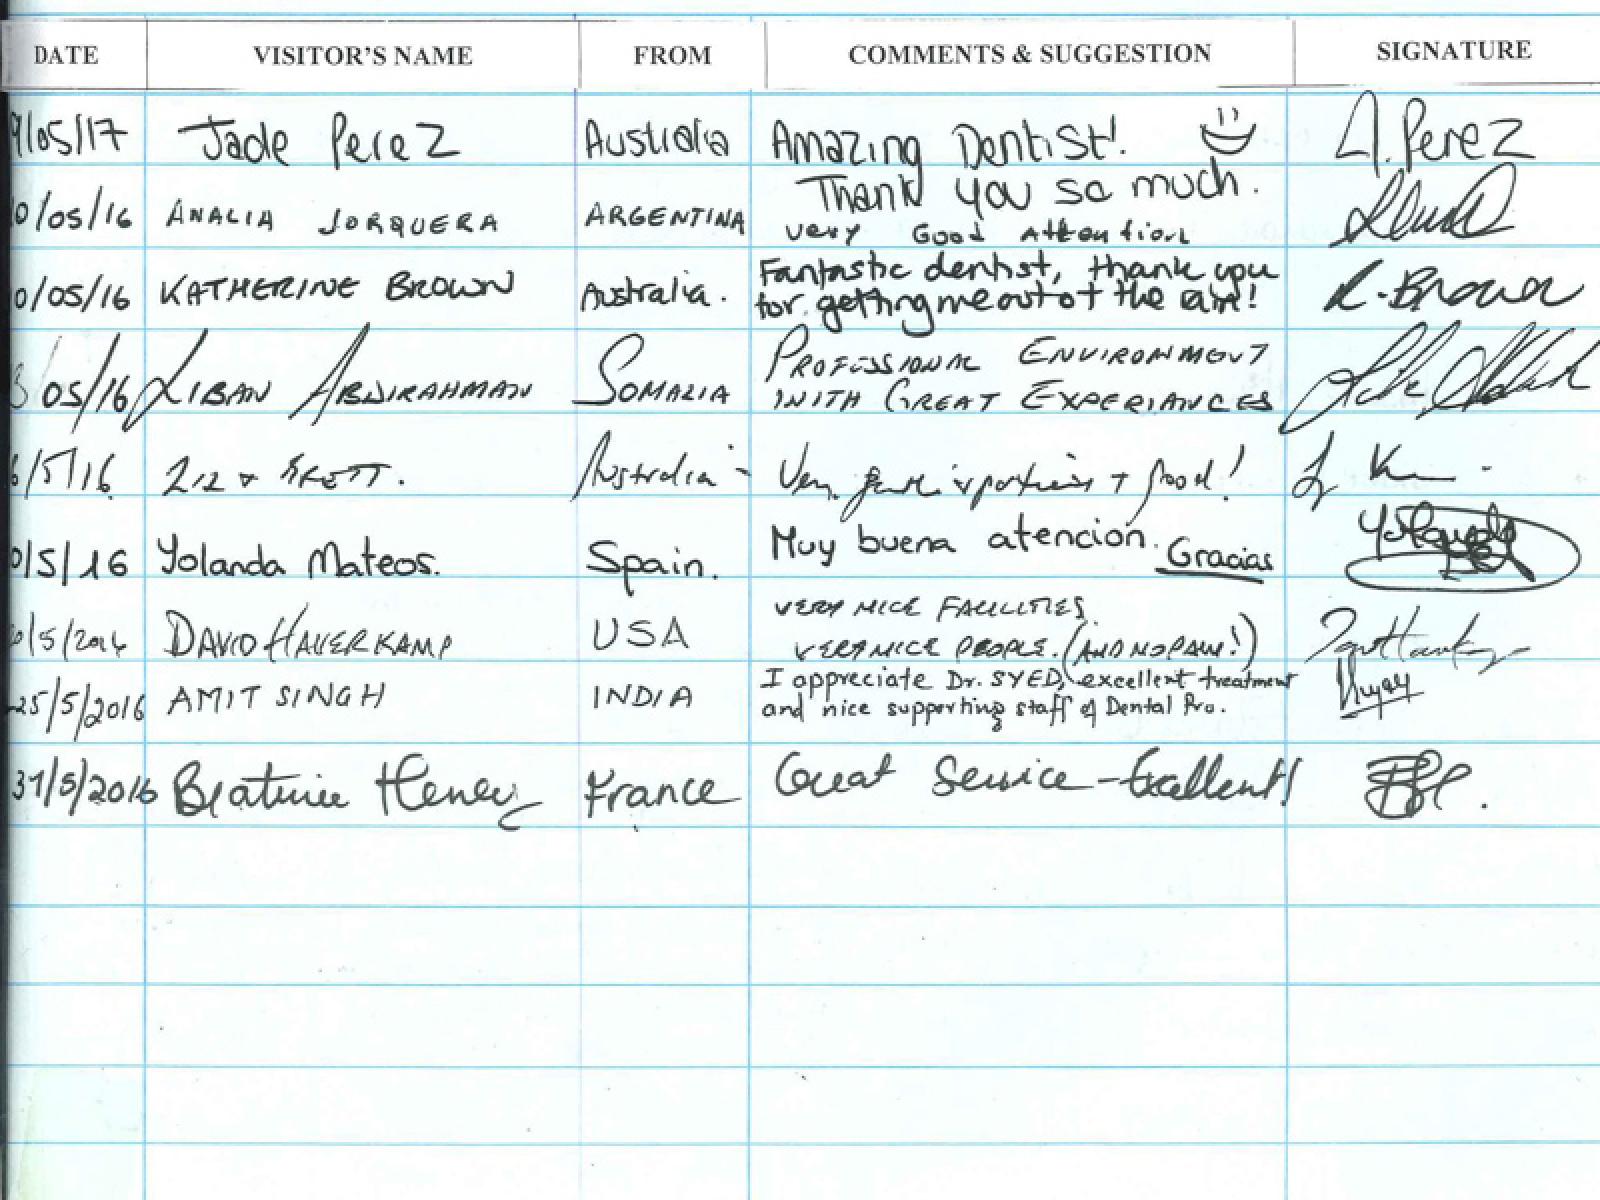 DATE VISITOR'S NAME FROM COMMENTS & SUGGESTION SIGNATURE
9/05/17 Jade Perez Australia Amazing Dentist! J. Perez
Thank you so much.
0/05/16 ANALIA JORQUERA ARGENTINA very Good Attention
0/05/16 KATHERINE BROWN Australia. Fantastic dentist, thank you K. Brown
for getting me out of the !
05/16 LIBAN ABDIRAHMAN SOMALIA PROFESSIONAL ENVIRONMENT
WITH GREAT EXPERIANCES
/5/16 Australia Very + good!
0/5/16 Yolanda Mateos. Spain. Muy buena atención. Yolanda
Gracias
/5/2016 DAVID HAVERKAMP USA VERY NICE FACILITIES
VERY NICE PEOPLE. (AND NO PAIN!)
25/5/2016 AMIT SINGH INDIA I appreciate Dr. SYED, excellent treatment
and nice supporting staff of Dental Pro.
31/5/2016 Beatrice Henry France Great Service - Excellent!